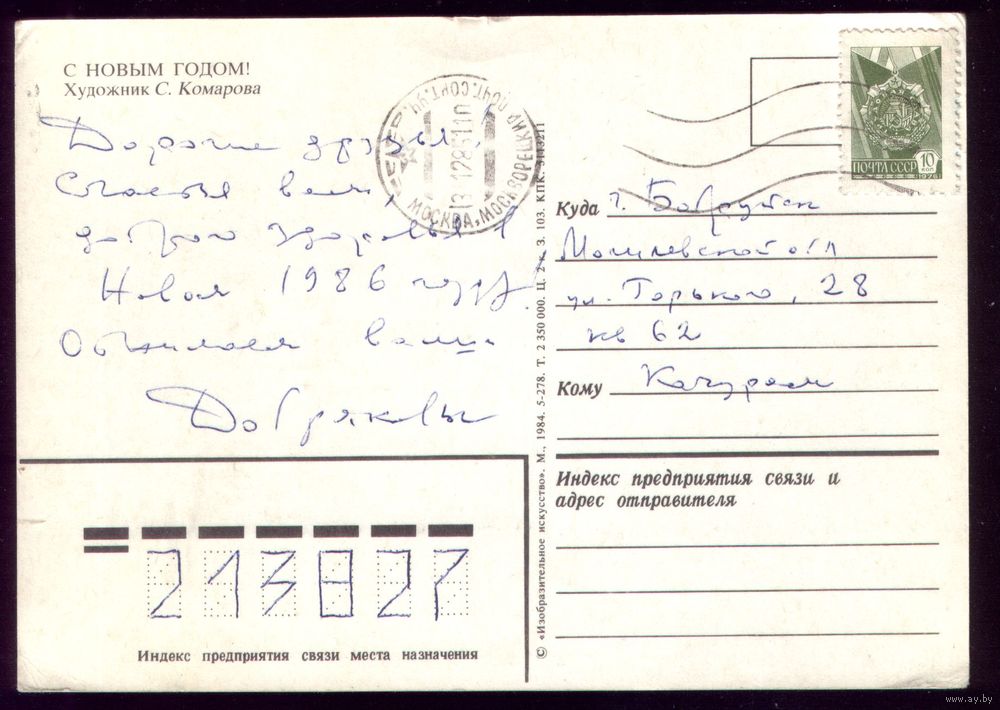 С НОВЫМ ГОДОМ!
Художник С. Комарова
Дорогие друзья!
Счастья вам,
доброго здоровья в
Новом 1986 году!
Обнимаем ваши
Добряковы
МОСКВА, МОСКВОРЕЦКИЙ ПОЧТ. СОРТ. УЧ.
ПОЧТА СССР
10
КОП
1976
Куда г. Бобруйск
Могилевской обл
ул. Горького, 28
кв 62
Кому Качурам
Индекс предприятия связи и
адрес отправителя
213827
Индекс предприятия связи места назначения
© «Изобразительное искусство». М., 1984. 5-278. Т. 2 350 000. Ц. 2 к. З. 103. КПК.
www.ay.by